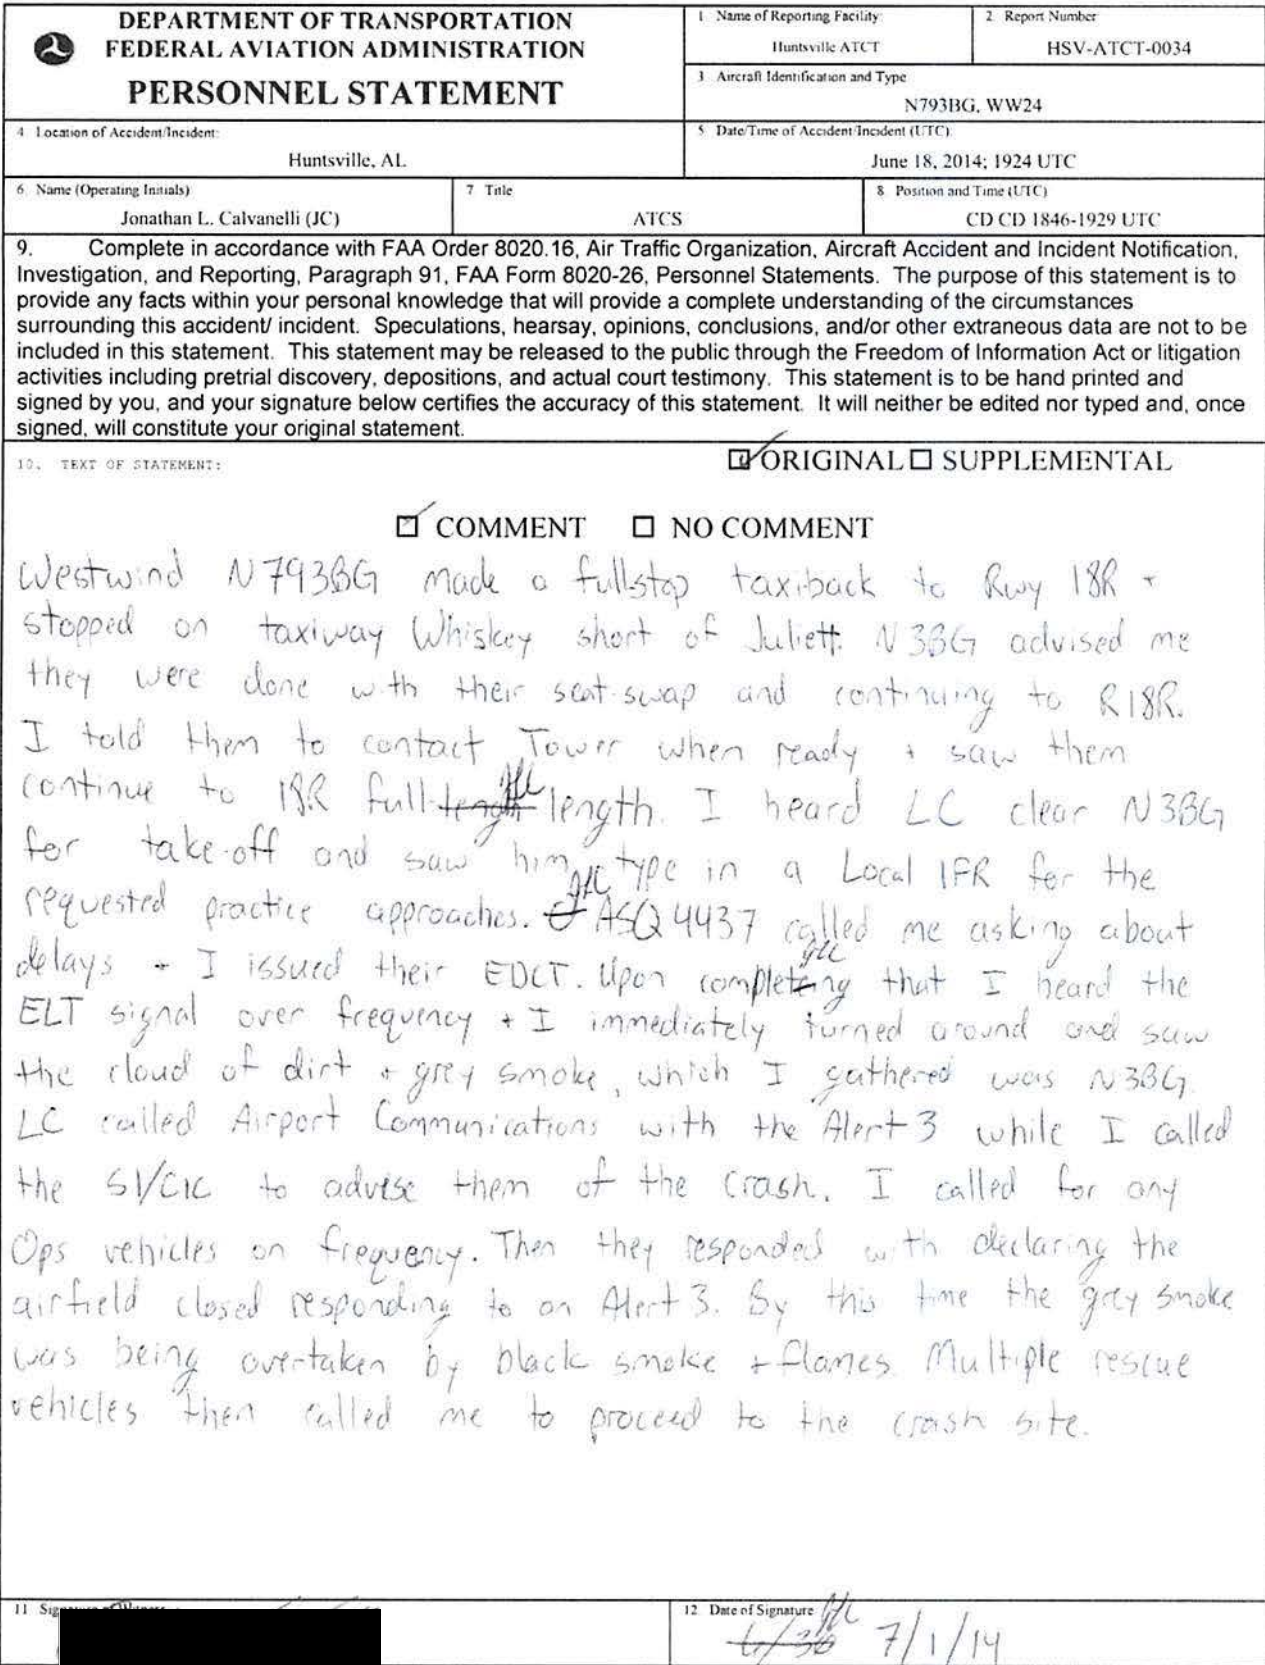 DEPARTMENT OF TRANSPORTATION
FEDERAL AVIATION ADMINISTRATION
PERSONNEL STATEMENT
1 Name of Reporting Facility:
Huntsville ATCT
2 Report Number
HSV-ATCT-0034
3 Aircraft Identification and Type
N793BG, WW24
4 Location of Accident/Incident:
Huntsville, AL
5 Date/Time of Accident/Incident (UTC):
June 18, 2014; 1924 UTC
6 Name (Operating Initials)
Jonathan L. Calvanelli (JC)
7 Title
ATCS
8 Position and Time (UTC)
CD CD 1846-1929 UTC
9. Complete in accordance with FAA Order 8020.16, Air Traffic Organization, Aircraft Accident and Incident Notification,
Investigation, and Reporting, Paragraph 91, FAA Form 8020-26, Personnel Statements. The purpose of this statement is to
provide any facts within your personal knowledge that will provide a complete understanding of the circumstances
surrounding this accident/ incident. Speculations, hearsay, opinions, conclusions, and/or other extraneous data are not to be
included in this statement. This statement may be released to the public through the Freedom of Information Act or litigation
activities including pretrial discovery, depositions, and actual court testimony. This statement is to be hand printed and
signed by you, and your signature below certifies the accuracy of this statement. It will neither be edited nor typed and, once
signed, will constitute your original statement.
10. TEXT OF STATEMENT:
☑ ORIGINAL ☐ SUPPLEMENTAL
☑ COMMENT ☐ NO COMMENT
Westwind N793BG made a fullstop taxiback to Rwy 18R +
stopped on taxiway Whiskey short of Juliett. N3BG advised me
they were done with their seat-swap and continuing to R18R.
I told them to contact Tower when ready + saw them
continue to 18R full length. I heard LC clear N3BG
for take-off and saw him type in a Local IFR for the
requested practice approaches. ASQ4437 called me asking about
delays + I issued their EDCT. Upon completing that I heard the
ELT signal over frequency + I immediately turned around and saw
the cloud of dirt + grey smoke, which I gathered was N3BG.
LC called Airport Communications with the Alert 3 while I called
the SI/CIC to advise them of the crash. I called for any
Ops vehicles on frequency. Then they responded with declaring the
airfield closed responding to an Alert 3. By this time the grey smoke
was being overtaken by black smoke + flames. Multiple rescue
vehicles then called me to proceed to the crash site.
11 Sig
12 Date of Signature
6/30 7/1/14